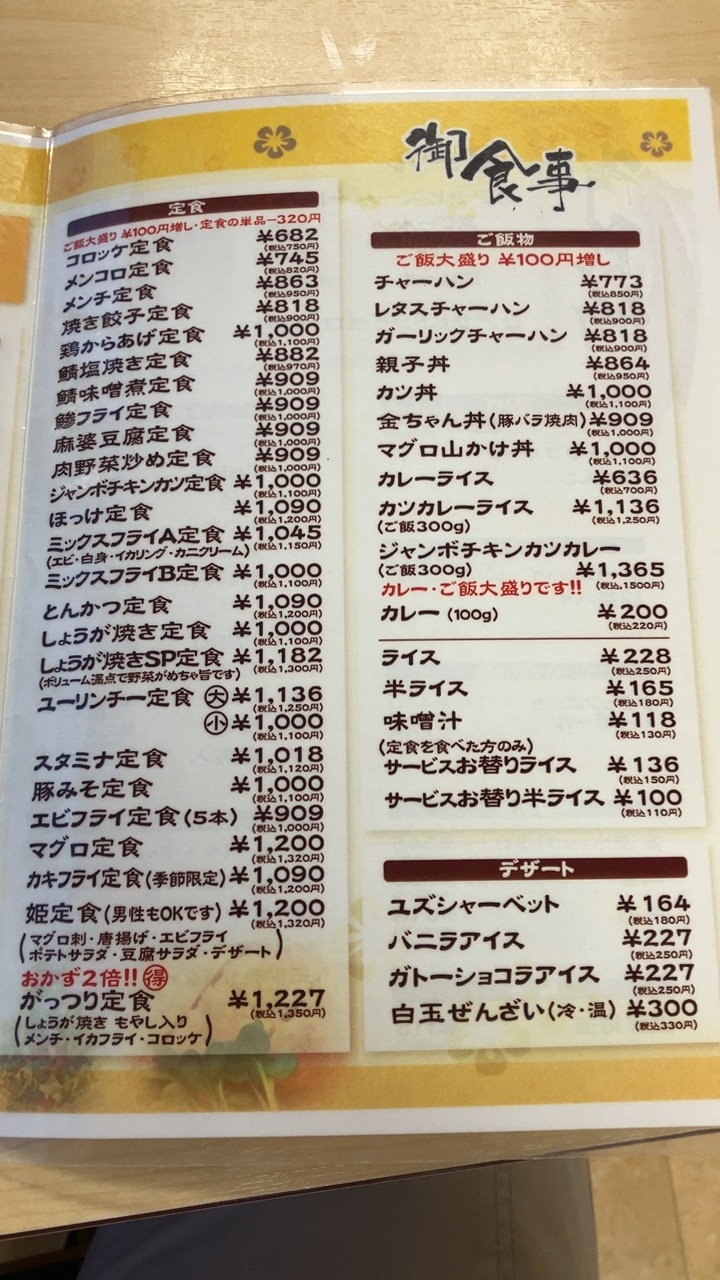 御食事
定食
ご飯大盛り ¥100円増し・定食の単品-320円
コロッケ定食 ¥682
(税込750円)
メンコロ定食 ¥745
(税込820円)
メンチ定食 ¥863
(税込950円)
焼き餃子定食 ¥818
(税込900円)
鶏からあげ定食 ¥1,000
(税込1,100円)
鯖塩焼き定食 ¥882
(税込970円)
鯖味噌煮定食 ¥909
(税込1,000円)
鯵フライ定食 ¥909
(税込1,000円)
麻婆豆腐定食 ¥909
(税込1,000円)
肉野菜炒め定食 ¥909
(税込1,000円)
ジャンボチキンカツ定食 ¥1,000
(税込1,100円)
ほっけ定食 ¥1,090
(税込1,200円)
ミックスフライA定食 ¥1,045
(エビ・白身・イカリング・カニクリーム) (税込1,150円)
ミックスフライB定食 ¥1,000
(税込1,100円)
とんかつ定食 ¥1,090
(税込1,200円)
しょうが焼き定食 ¥1,000
(税込1,100円)
しょうが焼きSP定食 ¥1,182
(ボリューム満点で野菜がめちゃ旨です) (税込1,300円)
ユーリンチー定食 大 ¥1,136
(税込1,250円)
小 ¥1,000
(税込1,100円)
スタミナ定食 ¥1,018
(税込1,120円)
豚みそ定食 ¥1,000
(税込1,100円)
エビフライ定食(5本) ¥909
(税込1,000円)
マグロ定食 ¥1,200
(税込1,320円)
カキフライ定食(季節限定) ¥1,090
(税込1,200円)
姫定食(男性もOKです) ¥1,200
(税込1,320円)
(マグロ刺・唐揚げ・エビフライ
ポテトサラダ・豆腐サラダ・デザート)
おかず2倍!! 得
がっつり定食 ¥1,227
(税込1,350円)
(しょうが焼き もやし入り
メンチ・イカフライ・コロッケ)
ご飯物
ご飯大盛り ¥100円増し
チャーハン ¥773
(税込850円)
レタスチャーハン ¥818
(税込900円)
ガーリックチャーハン ¥818
(税込900円)
親子丼 ¥864
(税込950円)
カツ丼 ¥1,000
(税込1,100円)
金ちゃん丼(豚バラ焼肉) ¥909
(税込1,000円)
マグロ山かけ丼 ¥1,000
(税込1,100円)
カレーライス ¥636
(税込700円)
カツカレーライス ¥1,136
(ご飯300g) (税込1,250円)
ジャンボチキンカツカレー
(ご飯300g) ¥1,365
カレー・ご飯大盛りです!! (税込.1500円)
カレー(100g) ¥200
(税込220円)
ライス ¥228
(税込250円)
半ライス ¥165
(税込180円)
味噌汁 ¥118
(税込130円)
(定食を食べた方のみ)
サービスお替りライス ¥136
(税込150円)
サービスお替り半ライス ¥100
(税込110円)
デザート
ユズシャーベット ¥164
(税込180円)
バニラアイス ¥227
(税込250円)
ガトーショコラアイス ¥227
(税込250円)
白玉ぜんざい(冷・温) ¥300
(税込330円)